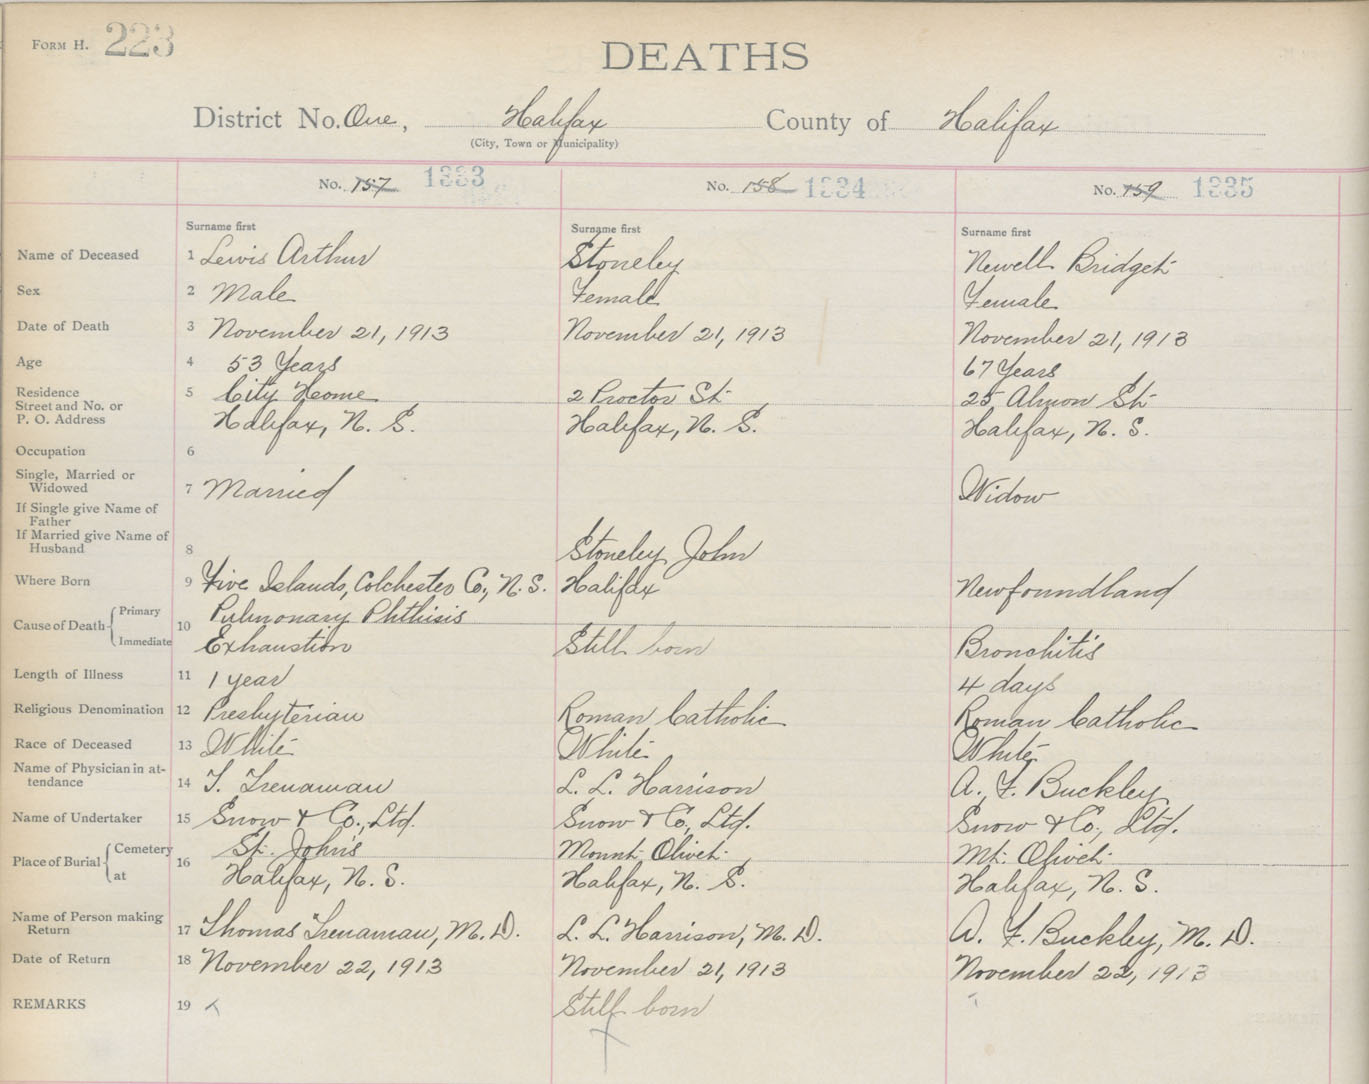 FORM H. 223
DEATHS
District No. One, Halifax County of Halifax
(City, Town or Municipality)
No. 157 1333 No. 158 1334 No. 159 1335
Surname first Surname first Surname first
Name of Deceased 1 Lewis Arthur Stoneley Newell Bridget
Sex 2 Male Female Female
Date of Death 3 November 21, 1913 November 21, 1913 November 21, 1913
Age 4 53 Years 67 Years
Residence 5 City Home 2 Proctor St. 25 Almon St.
Street and No. or
P. O. Address Halifax, N. S. Halifax, N. S. Halifax, N. S.
Occupation 6
Single, Married or
Widowed 7 Married Widow
If Single give Name of
Father
If Married give Name of
Husband 8 Stoneley John
Where Born 9 Five Islands, Colchester Co., N. S. Halifax Newfoundland
Cause of Death Primary 10 Pulmonary Phthisis
Immediate Exhaustion Still born Bronchitis
Length of Illness 11 1 year 4 days
Religious Denomination 12 Presbyterian Roman Catholic Roman Catholic
Race of Deceased 13 White White White
Name of Physician in at-
tendance 14 T. Trenaman L. L. Harrison A. F. Buckley
Name of Undertaker 15 Snow & Co., Ltd. Snow & Co, Ltd. Snow & Co., Ltd.
Place of Burial Cemetery 16 St. John's Mount Olivet Mt. Olivet
at Halifax, N. S. Halifax, N. S. Halifax, N. S.
Name of Person making
Return 17 Thomas Trenaman, M. D. L. L. Harrison, M. D. A. F. Buckley, M. D.
Date of Return 18 November 22, 1913 November 21, 1913 November 22, 1913
REMARKS 19 Still born